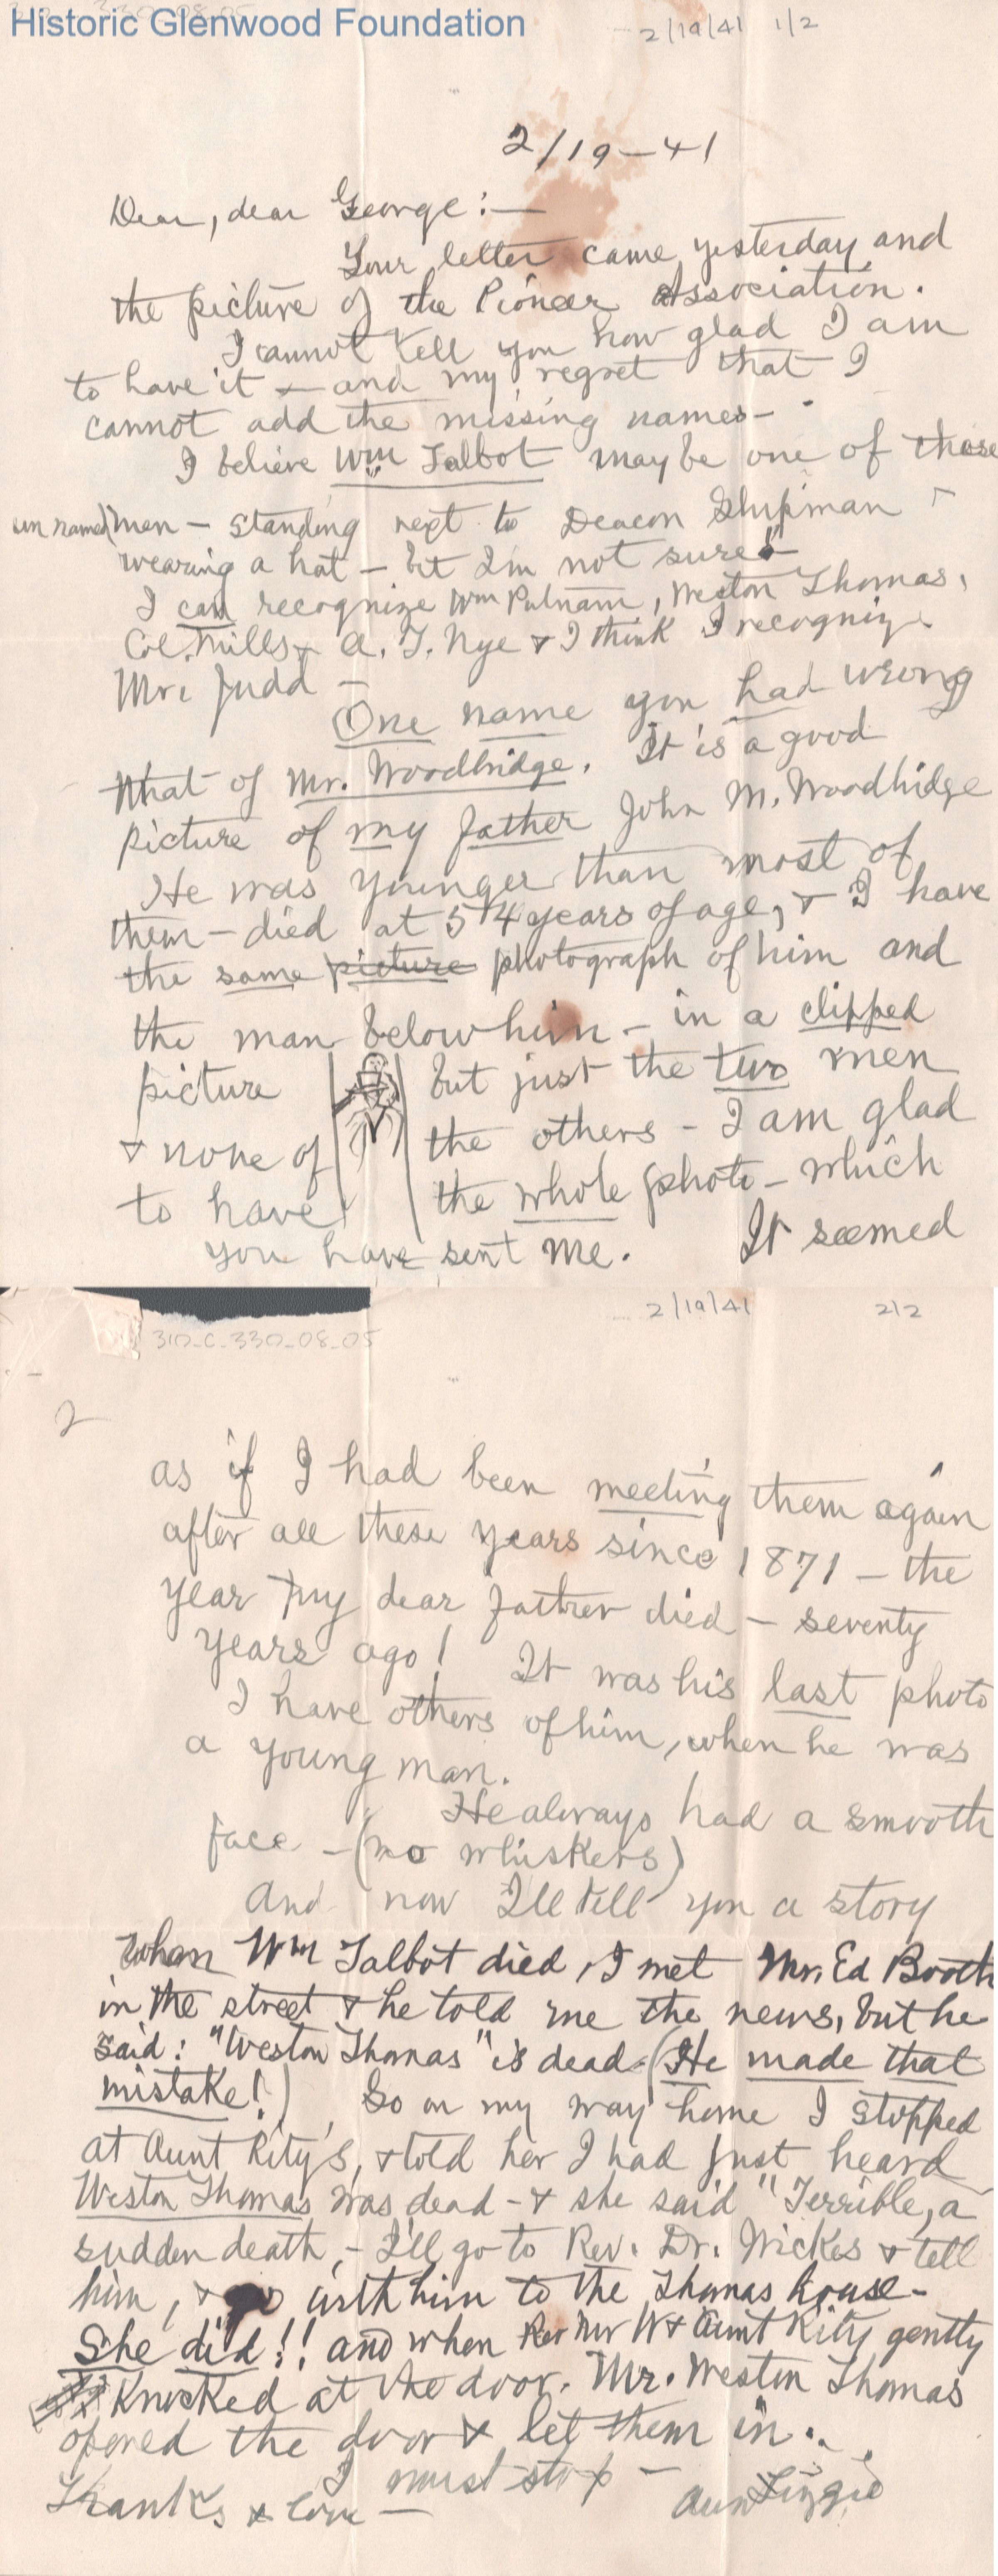 Historic Glenwood Foundation
2/19/41 1/2
2/19-41
Dear, dear George:—
Your letter came yesterday and
the picture of the Pioneer Association.
I cannot tell you how glad I am
to have it — and my regret that I
cannot add the missing names—
I believe Wm Talbot may be one of those
un named men — standing next to Deacon Shipman
wearing a hat — but I'm not sure—
I can recognize Wm Putnam, Weston Thomas,
Col. Mills — A. T. Nye & I think I recognize
Mr. Judd —
One name you had wrong
that of Mr. Woodbridge. It is a good
picture of my father John M. Woodbridge
He was younger than most of
them — died at 54 years of age, & I have
the same picture photograph of him and
the man below him — in a clipped
picture but just the two men
& none of the others — I am glad
to have the whole photo — which
you have sent me. It seemed
2/19/41 2/2
310-C-330-08-05
2
as if I had been meeting them again
after all these years since 1871 — the
year my dear father died — seventy
years ago! It was his last photo
I have others of him, when he was
a young man.
He always had a smooth
face — (no whiskers)
And now I'll tell you a story
When Wm Talbot died, I met Mr. Ed Booth
in the street & he told me the news, but he
said: "Weston Thomas" is dead. (He made that
mistake!) So on my way home I stopped
at Aunt Kity's, & told her I had just heard
Weston Thomas was dead — & she said "Terrible, a
sudden death, — I'll go to Rev. Dr. Wickes & tell
him, & go with him to the Thomas house—
She did!! and when Rev Mr W & Aunt Kity gently
Knocked at the door. Mr. Weston Thomas
opened the door & let them in..
I must stop —
Thanks & love — Aunt Lizzie